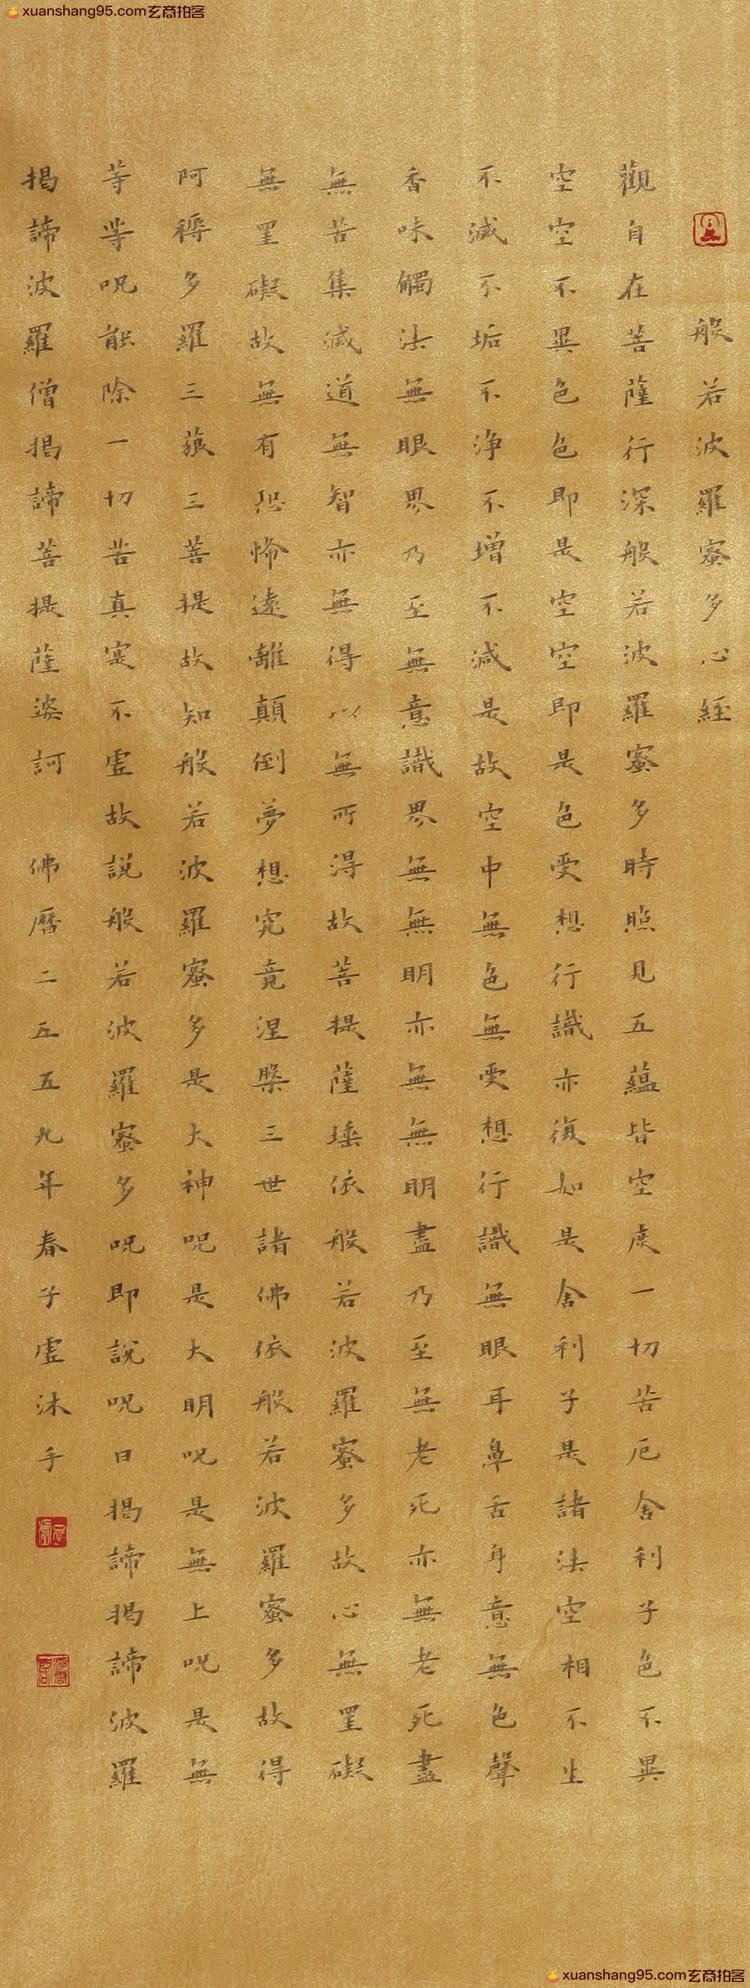 xuanshang95.com玄商拍客
般若波羅蜜多心経
觀自在菩薩行深般若波羅蜜多時照見五蘊皆空度一切苦厄舍利子色不異
空空不異色色即是空空即是色受想行識亦復如是舍利子是諸法空相不生
不滅不垢不淨不增不減是故空中無色無受想行識無眼耳鼻舌身意無色聲
香味觸法無眼界乃至無意識界無無明亦無無明盡乃至無老死亦無老死盡
無苦集滅道無智亦無得以無所得故菩提薩埵依般若波羅蜜多故心無罣礙
無罣礙故無有恐怖遠離顛倒夢想究竟涅槃三世諸佛依般若波羅蜜多故得
阿耨多羅三藐三菩提故知般若波羅蜜多是大神呪是大明呪是無上呪是無
等等呪能除一切苦真實不虛故說般若波羅蜜多呪即說呪曰揭諦揭諦波羅
揭諦波羅僧揭諦菩提薩婆訶 佛曆二五五九年春子虛沐手
xuanshang95.com玄商拍客